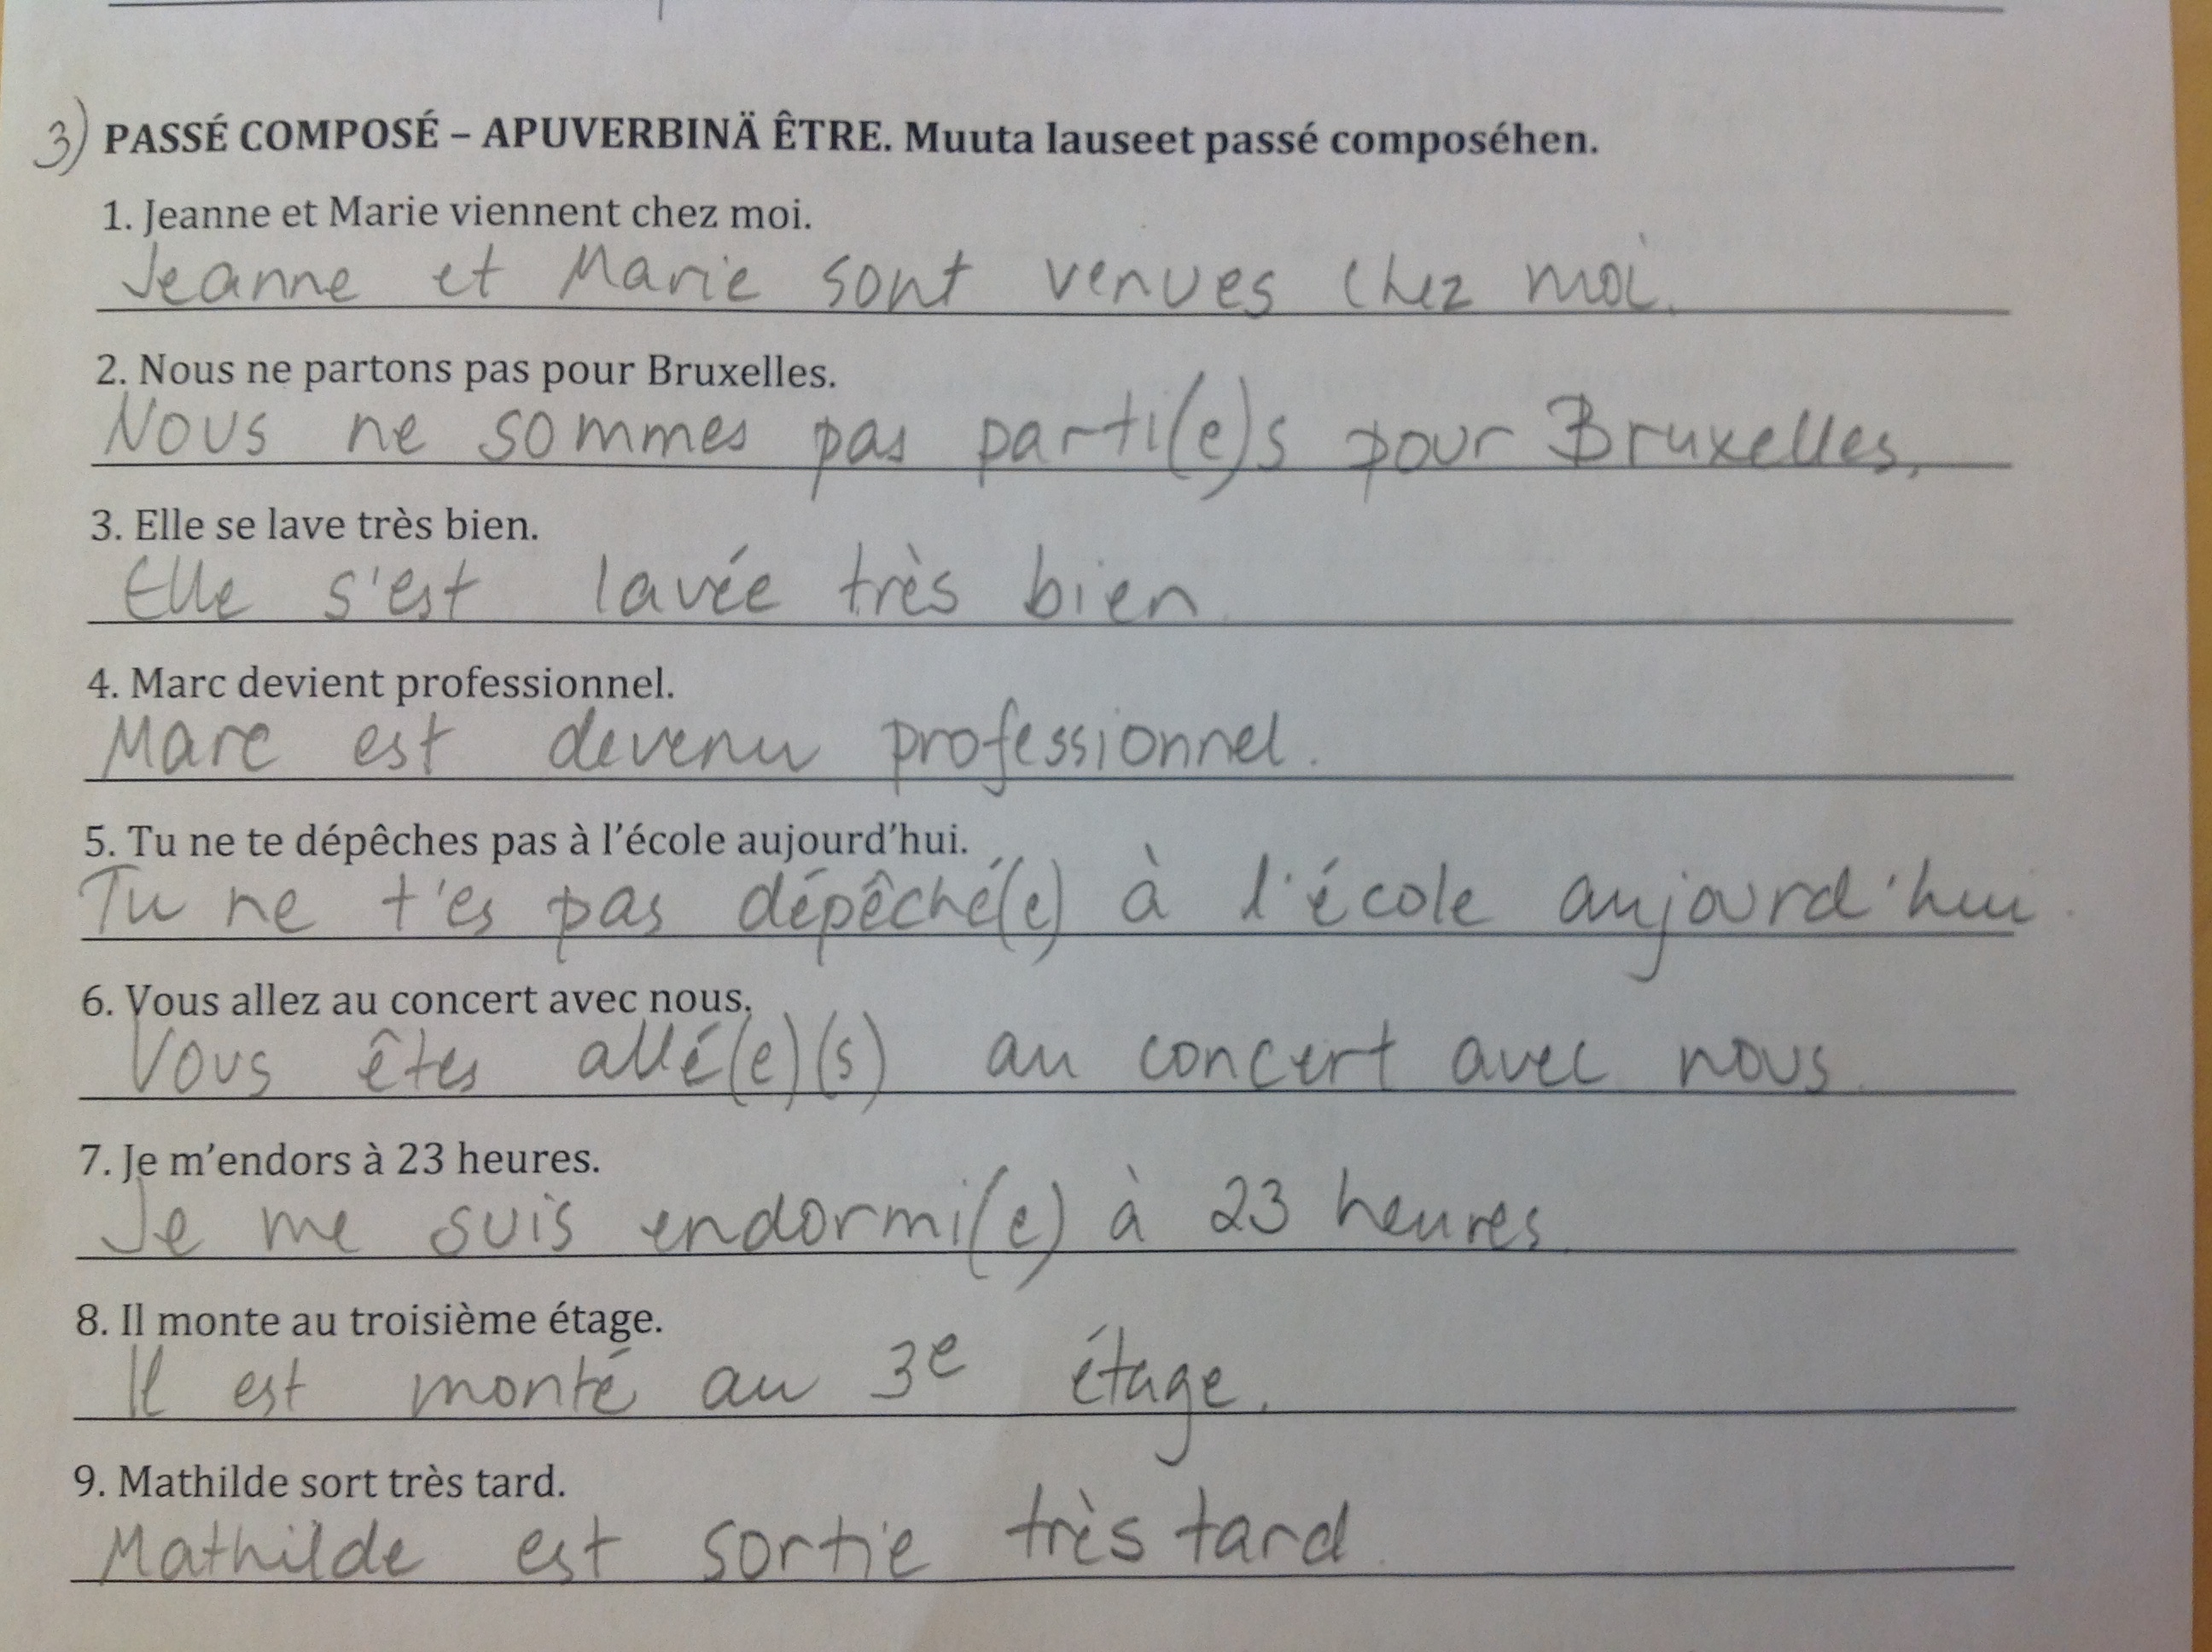 3) PASSÉ COMPOSÉ – APUVERBINÄ ÊTRE. Muuta lauseet passé composéhen.
1. Jeanne et Marie viennent chez moi.
Jeanne et Marie sont venues chez moi.
2. Nous ne partons pas pour Bruxelles.
Nous ne sommes pas parti(e)s pour Bruxelles.
3. Elle se lave très bien.
Elle s'est lavée très bien.
4. Marc devient professionnel.
Marc est devenu professionnel.
5. Tu ne te dépêches pas à l'école aujourd'hui.
Tu ne t'es pas dépêché(e) à l'école aujourd'hui.
6. Vous allez au concert avec nous.
Vous êtes allé(e)(s) au concert avec nous.
7. Je m'endors à 23 heures.
Je me suis endormi(e) à 23 heures.
8. Il monte au troisième étage.
Il est monté au 3e étage.
9. Mathilde sort très tard.
Mathilde est sortie très tard.